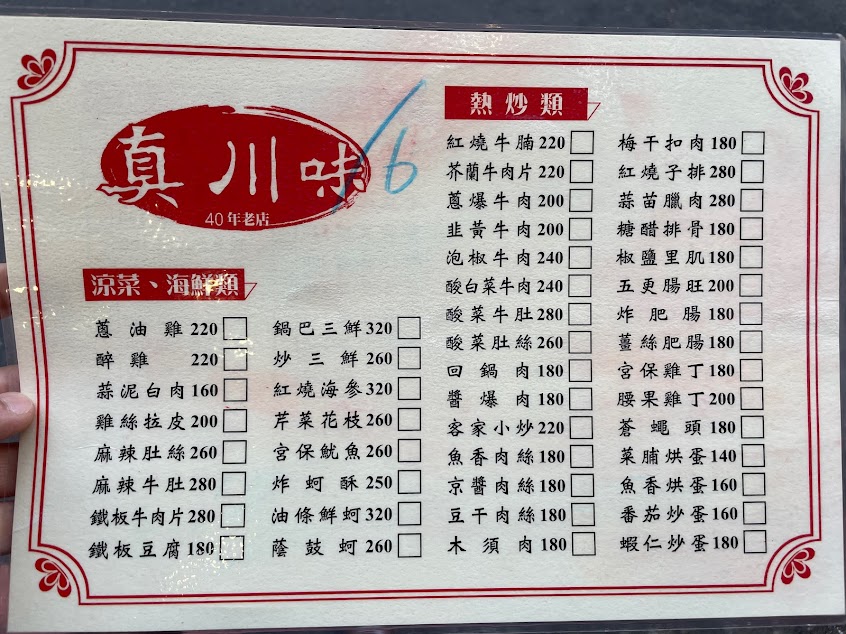 真川味
40年老店
16
涼菜、海鮮類
蔥油雞 220
醉雞 220
蒜泥白肉 160
雞絲拉皮 200
麻辣肚絲 260
麻辣牛肚 280
鐵板牛肉片 280
鐵板豆腐 180
鍋巴三鮮 320
炒三鮮 260
紅燒海參 320
芹菜花枝 260
宮保魷魚 260
炸蚵酥 250
油條鮮蚵 320
蔭鼓蚵 260
熱炒類
紅燒牛腩 220
芥蘭牛肉片 220
蔥爆牛肉 200
韭黃牛肉 200
泡椒牛肉 240
酸白菜牛肉 240
酸菜牛肚 280
酸菜肚絲 260
回鍋肉 180
醬爆肉 180
客家小炒 220
魚香肉絲 180
京醬肉絲 180
豆干肉絲 180
木須肉 180
梅干扣肉 180
紅燒子排 280
蒜苗臘肉 280
糖醋排骨 180
椒鹽里肌 180
五更腸旺 200
炸肥腸 180
薑絲肥腸 180
宮保雞丁 180
腰果雞丁 200
蒼蠅頭 180
菜脯烘蛋 140
魚香烘蛋 160
番茄炒蛋 160
蝦仁炒蛋 180